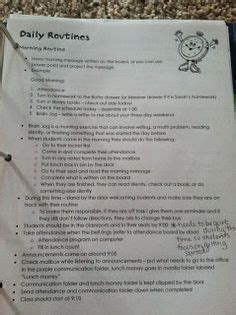 Daily Routines
Morning Routine
Have morning message written on the board, or you can use
power point and project the message
Example:
Good Morning!
1. Attendance
2. Turn in homework to the
2. Turn in library books – check out ads today!
3. Check the schedule today – assembly at 1:30
4. Brain Jog – write a letter to me about your three day weekend
Brain Jog is a morning exercise that can involve writing, a math problem, reading
silently, or finishing something that was started the day before
When students come in the morning they should do the following:
Go to their locker
Come in and complete their attendance
Turn in any notes from home to the mailbox
Put lunch box in bin by the door
Go to their seat and read the morning message
Complete what is written on the board
When they are finished, they can read silently, check out a book, or do
something else silently
During this time – stand by the door welcoming students and make sure they are on
track with their routine
To make them responsible, if they are off task I give them
they still don't follow directions, they
Students should be in the classroom and in their seats by 9:00
Take attendance when the bell rings (refer to attendance board as
Attendance program on computer
Fill in lunch count
Announcements come on around 9:05
Check mailbox while listening to announcements – put what needs to go to the office
in the purple communication folder, lunch money goes in manila folder labeled
"lunch money"
Communication folder and lunch money folder is kept clipped by the door
Send attendance and communication folder down when completed
Class should start at 9:10
needs to be quiet
during this
time so students